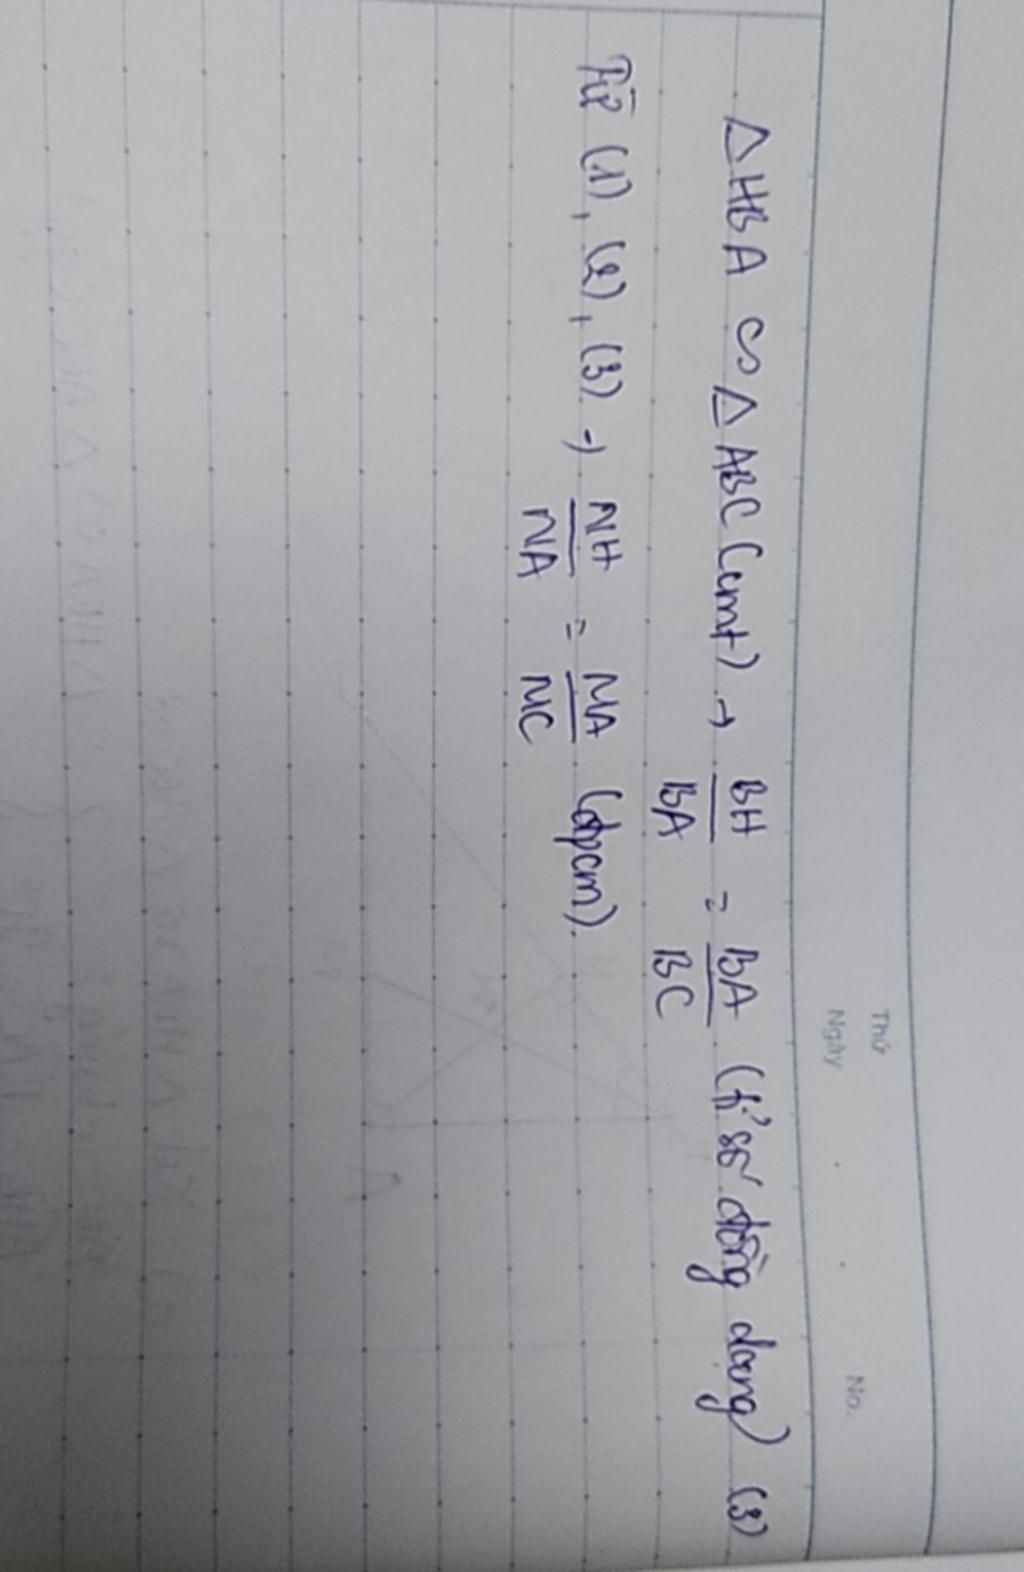 Thứ
Ngày No.
△HBA ∽ △ABC (cmt) → BH/BA = BA/BC (tỉ số đồng dạng) (3)
Từ (1), (2), (3) → NH/NA = MA/MC (đpcm).